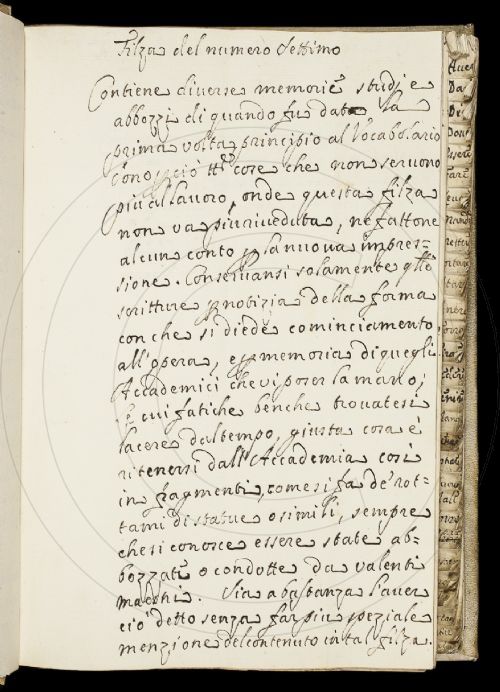 Filza del numero Settimo
Contiene diverse memorie studj e
abbozzi di quando fu dato la
prima volta principio al Vocabolario
sono però tte cose che non servono
più al lavoro, onde questa filza
non va più riveduta, ne fattone
alcun conto p la nuova impres-
sione. Conservansi solamente qlle
scritture p notizia della forma
con che si diede cominciamento
all'opera, e p memoria di quegli
Accademici che vi poser la mano;
le cui fatiche benche trovatesi
lacere dal tempo, giusta cosa è
ritenersi dall'Accademia così
in fragmenti, come si fa de' rot-
tami di statue o simili, sempre
che si conosce essere state ab-
bozzate o condotte da valenti
maestri. Sia abastanza l'aver
ciò detto senza far più speziale
menzione del contenuto in tal filza.